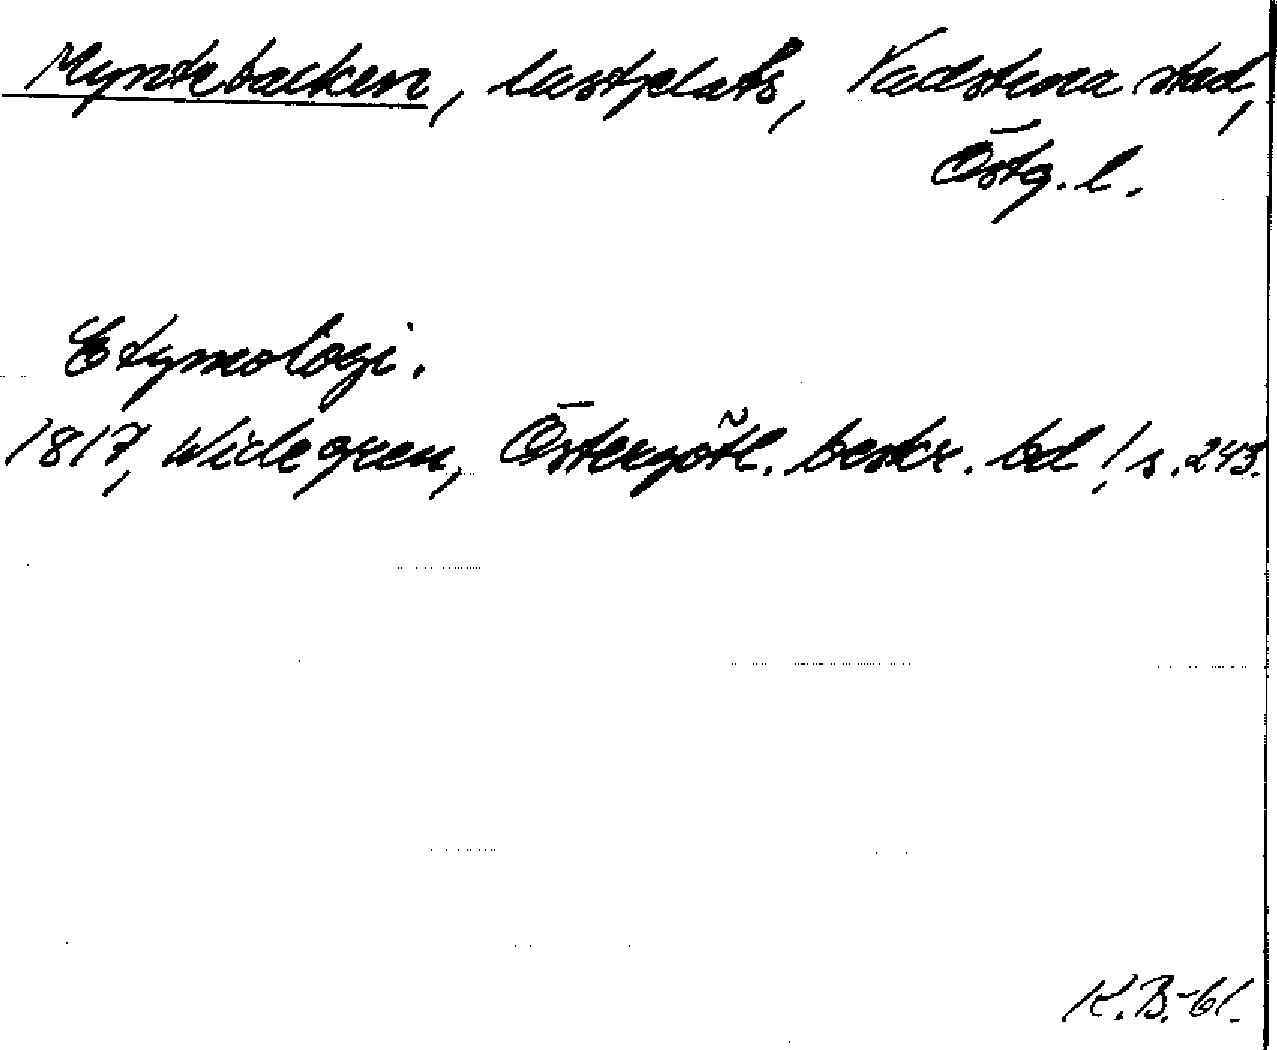 Myntebacken, lastplats, Vadstena stad,
Östg. l.
Etymologi.
1817, Widegren, Östergötl. beskr. bd 1, s. 243.
K.B.-61.